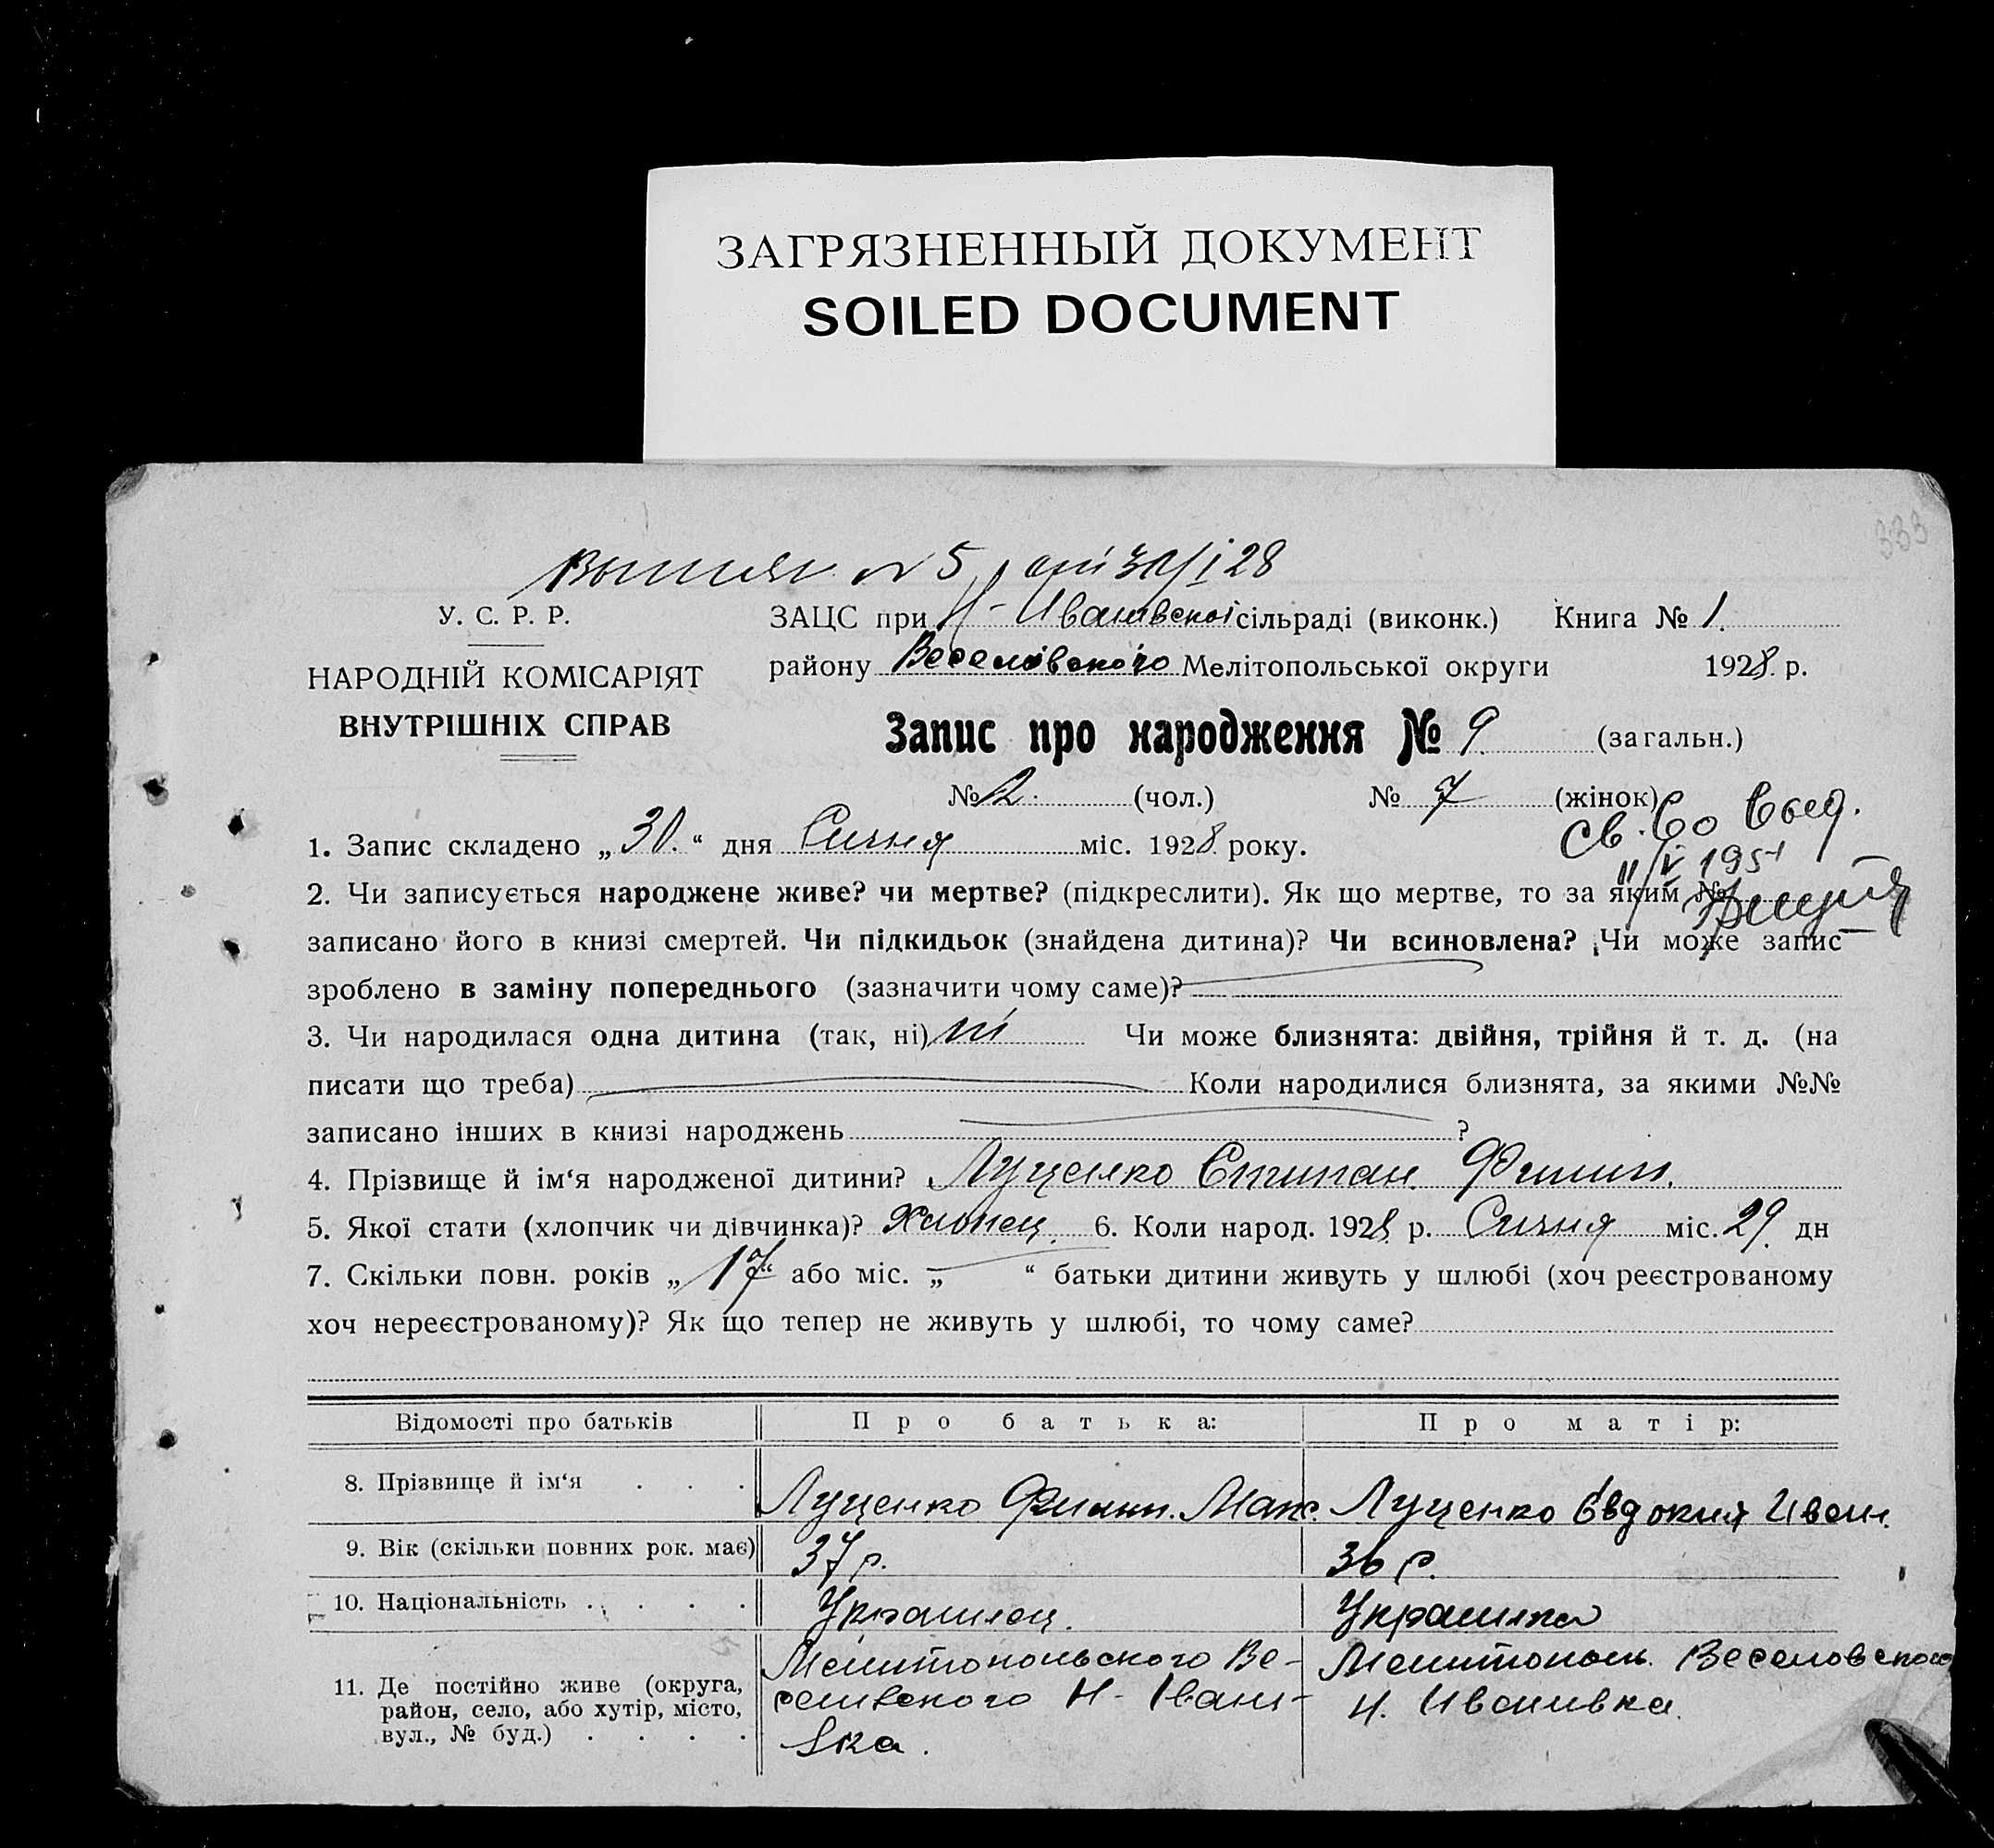 333
ЗАГРЯЗНЕННЫЙ ДОКУМЕНТ
SOILED DOCUMENT
№ 5 от 30/I 28
У. С. Р. Р.
НАРОДНІЙ КОМІСАРІЯТ
ВНУТРІШНІХ СПРАВ
ЗАЦС при Н-Іванівской сільраді (виконк.) Книга № 1.
району Веселівського Мелітопольської округи 1928 р.
Запис про народження № 9. (загальн.)
№ 2. (чол.) № 7 (жінок)
Св-во выд.
11/V 1951
1. Запис складено „30.“ дня Січня міс. 1928 року.
2. Чи записується народжене живе? чи мертве? (підкреслити). Як що мертве, то за яким №
записано його в книзі смертей. Чи підкидьок (знайдена дитина)? Чи всиновлена? Чи може запис
зроблено в заміну попереднього (зазначити чому саме)?
3. Чи народилася одна дитина (так, ні) ні Чи може близнята: двійня, трійня й т. д. (на
писати що треба) Коли народилися близнята, за якими №№
записано інших в книзі народжень ?
4. Прізвище й ім‘я народженої дитини? Луценко Степан Филип.
5. Якої стати (хлопчик чи дівчинка)? Хлопец 6. Коли народ. 1928 р. Січня міс. 29. дн
7. Скільки повн. років „17“ або міс. „ “ батьки дитини живуть у шлюбі (хоч реєстрованому
хоч нереєстрованому)? Як що тепер не живуть у шлюбі, то чому саме?
Відомості про батьків Про батька: Про матір:
8. Прізвище й ім‘я . . . Луценко Филип. Мак. Луценко Евдокия Иван.
9. Вік (скільки повних рок. має) 37 р. 36 р.
10. Національність . . . . Украинец. Украинка
11. Де постійно живе (округа, район, село, або хутір, місто, вул., № буд.) . . . .
Мелитопольского Ве-
селивского Н-Івани-
вка.
Мелитополь. Веселовского
Н. Иванивка.